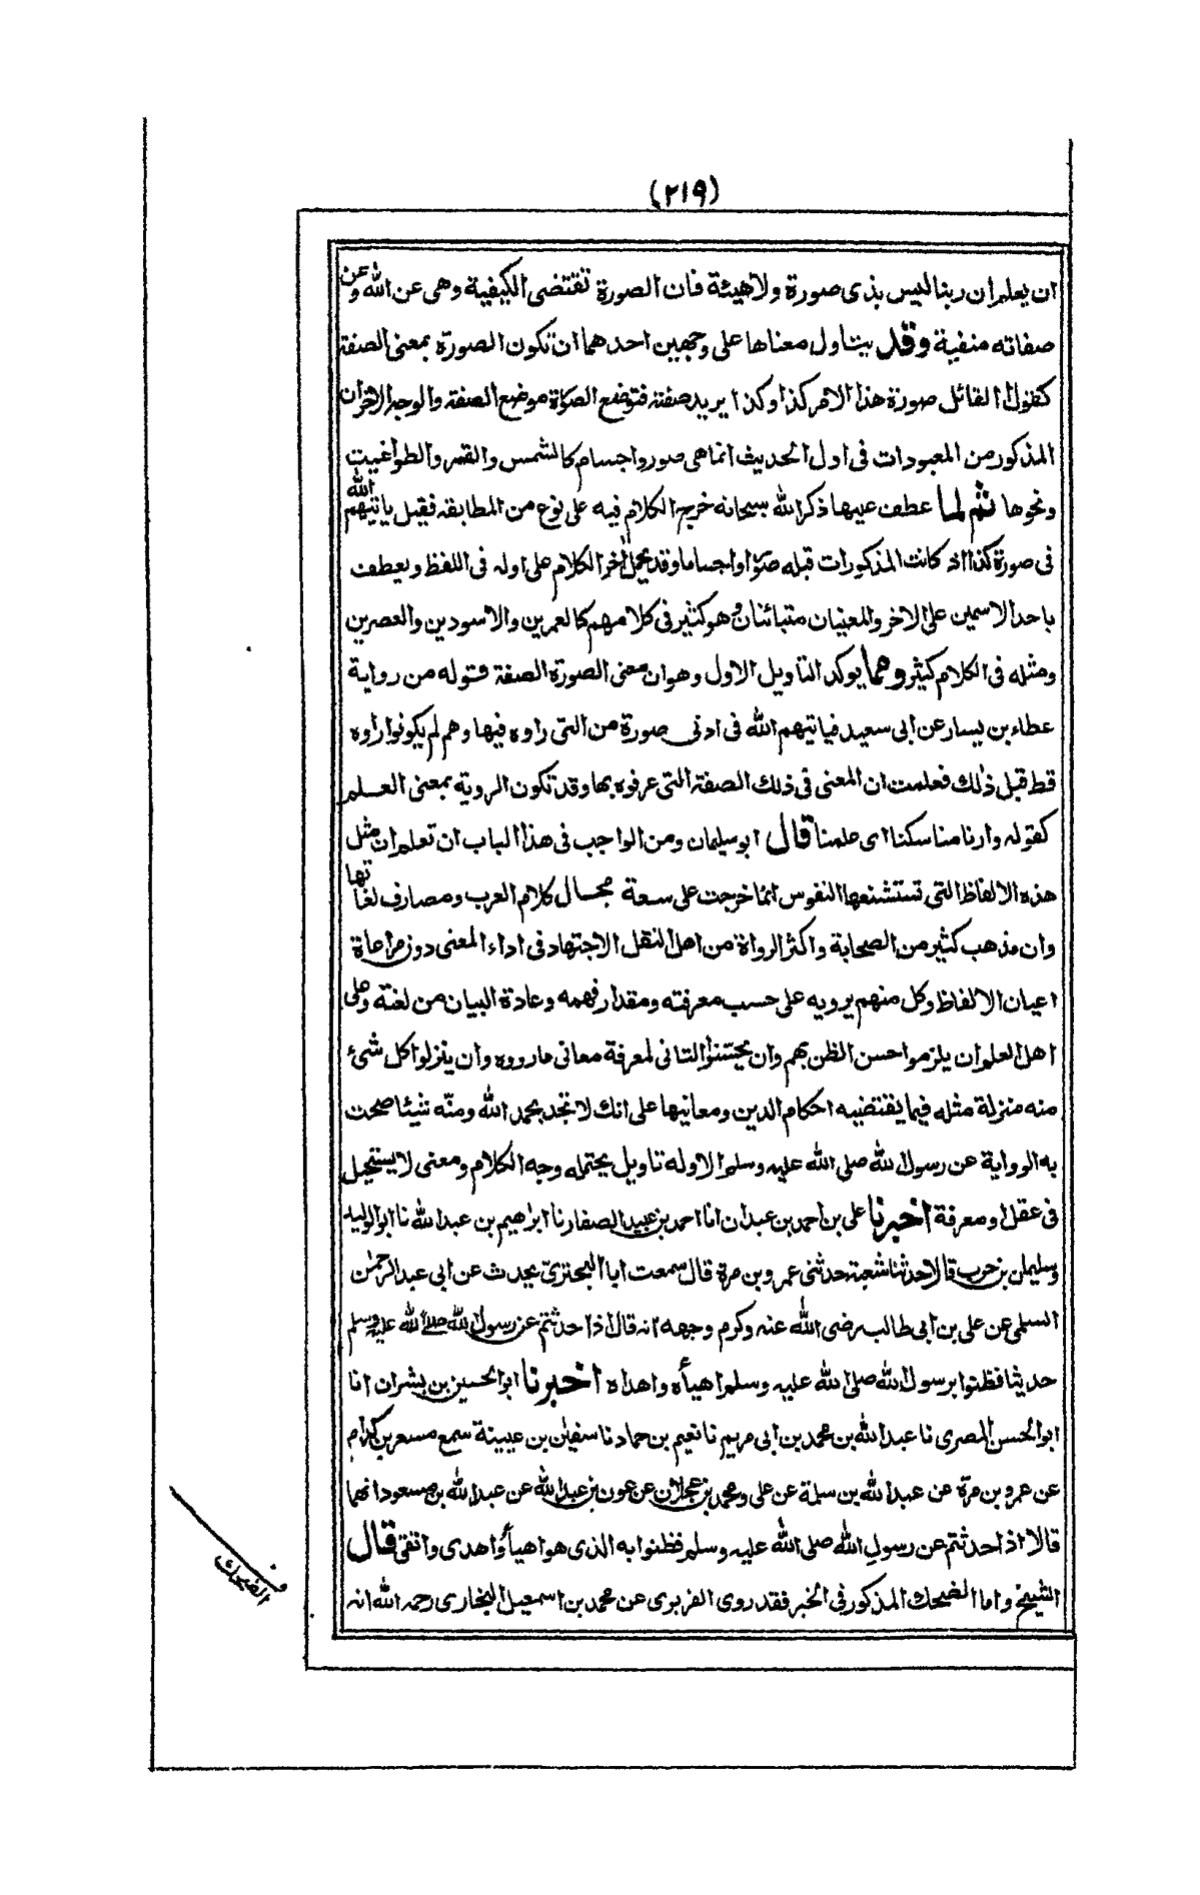 (٢١٩)
ان يعلم ان ربنا ليس بذى صورة ولا هيئة فان الصورة تقتضى الكيفية وهى عن الله وعن
صفاته منفية وقد يتاول معناها على وجهين احدهما ان تكون الصورة بمعنى الصفة
كقول القائل صورة هذا الامر كذا وكذا يريد صفته فتوضع الصورة موضع الصفة والوجه الاخر ان
المذكور من المعبودات فى اول الحديث انما هى صور واجسام كالشمس والقمر والطواغيت
ونحوها ثم لما عطف عليها ذكر الله سبحانه خرج الكلام فيه على نوع من المطابقه فقيل ياتيهم الله
فى صورة كذا اذ كانت المذكورات قبله صورا واجساما وقد يحمل اخر الكلام على اوله فى اللفظ ويعطف
باحد الاسمين على الاخر والمعنيان متبائنان وهو كثير فى كلامهم كالعمرين والاسودين والعصرين
ومثله فى الكلام كثير ومما يوكد التاويل الاول وهو ان معنى الصورة الصفة قوله من رواية
عطاء بن يسار عن ابى سعيد فياتيهم الله فى ادنى صورة من التى راوه فيها وهم لم يكونوا راوه
قط قبل ذلك فعلمت ان المعنى فى ذلك الصفة التى عرفوه بها وقد تكون الروية بمعنى العلم
كقوله وارنا مناسكنا اى علمنا قال ابو سليمان ومن الواجب فى هذا الباب ان تعلم ان مثل
هذه الالفاظ التى تستشنعها النفوس انما خرجت على سعة مجال كلام العرب ومصارف لغاتها
وان مذهب كثير من الصحابة واكثر الرواة من اهل النقل الاجتهاد فى اداء المعنى دون مراعاة
اعيان الالفاظ وكل منهم يرويه على حسب معرفته ومقدار فهمه وعادة البيان من لغته وعلى
اهل العلم ان يلزموا حسن الظن بهم وان يحسنوا التانى لمعرفة معانى ما رووه وان ينزلوا كل شئ
منه منزلة مثله فيما يقتضيه احكام الدين ومعانيها على انك لا تجد بحمد الله ومنّه شيئا صحت
به الرواية عن رسول الله صلى الله عليه وسلم الا وله تاويل يحتمله وجه الكلام ومعنى لا يستحيل
فى عقل او معرفة اخبرنا على بن احمد بن عبدان انا احمد بن عبيد الصفار نا ابراهيم بن عبد الله نا ابو الوليد
وسليمن بن حرب قالا حدثنا شعبة حدثنى عمرو بن مرة قال سمعت ابا البخترى يحدث عن ابى عبد الرحمن
السلمى عن على بن ابى طالب رضى الله عنه وكرم وجهه انه قال اذا حدثتم عن رسول الله صلى الله عليه وسلم
حديثا فظنوا برسول الله صلى الله عليه وسلم اهيأه واهداه اخبرنا ابو الحسين بن بشران انا
ابو الحسن المصرى نا عبد الله بن محمد بن ابى مريم نا نعيم بن حماد نا سفيان بن عيينة سمع مسعر بن كدام
عن عمرو بن مرة عن عبد الله بن سلمة عن على ومحمد بن عجلان عن عون بن عبد الله عن عبد الله بن مسعود انهما
قالا اذا حدثتم عن رسول الله صلى الله عليه وسلم فظنوا به الذى هو اهيأ واهدى واتقى قال
الشيخ واما الضحك المذكور فى الخبر فقد روى الفربرى عن محمد بن اسمعيل البخارى رحمه الله انه
الضحك